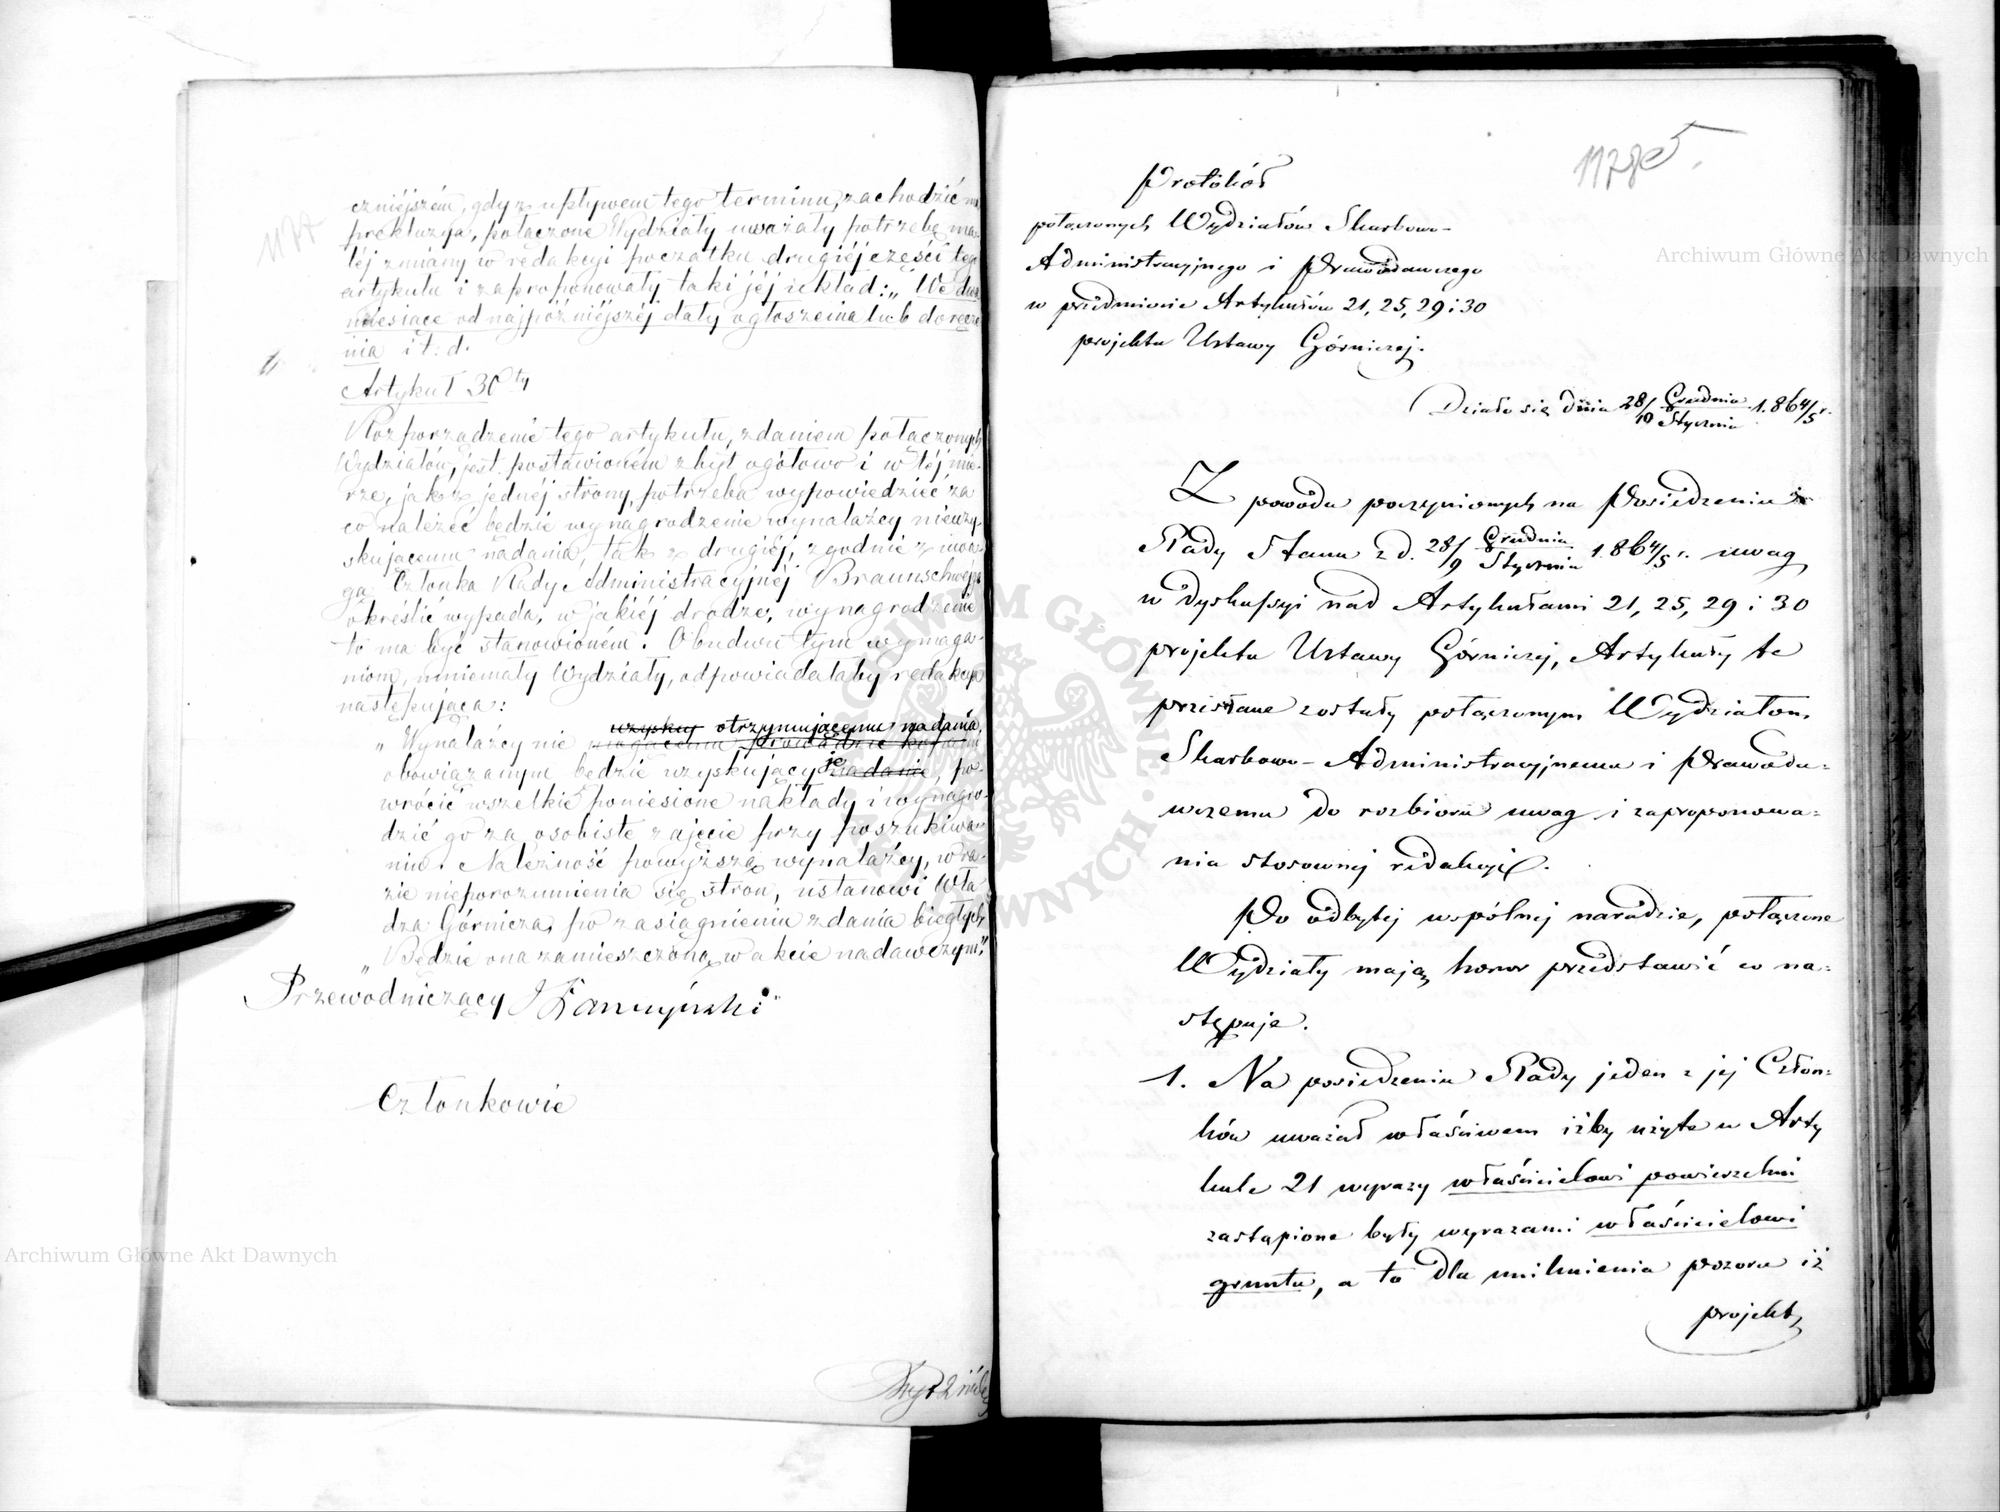 czniéjszém, gdy z upływem tego terminu, zachodzić ma
prekluzya, połączone Wydziały uważały potrzebę ma-
łéj zmiany w redakcyi początku drugiéj części tego
artykułu i zaproponowały taki jéj układ: „We dwa
miesiące od najpóźniéjszéj daty ogłoszenia lub doręcze
nia i t. d.
Artykuł 30ty
Rozporządzenie tego artykułu, zdaniem połączonych
Wydziałów, jest postawioném zbyt ogółowo i w téj mie-
rze, jak z jednéj strony, potrzeba wypowiedzieć za
co należeć będzie wynagrodzenie wynalazcy nieuzy-
skującemu nadania, tak z drugiéj, zgodnie z uwa-
gą Członka Rady Administracyjnéj Braunschweiga
określić wypada, w jakiéj drodze, wynagrodzenie
to ma być stanowioném. Obudwu tym wymaga-
niom, mniemały Wydziały, odpowiadałaby redakcya
następująca:
uzyskuj otrzymującemu nadania,
„Wynalazcy nie
obowiązanym będzie uzyskujący je nadanie, po-
wrócić wszelkie poniesione nakłady i wynagro-
dzić go za osobiste zajęcie przy poszukiwa-
niu. Należność powyższą wynalazcy, w ra-
zie nieporozumienia się stron, ustanowi Wła
dza Górnicza, po zasiągnieniu zdania biegłych
„Będzie ona zamieszczoną w akcie nadawczym."
Przewodniczący
Członkowie
Protokół
połączonych Wydziałów Skarbowo-
Administracyjnego i Prawodawczego
w przedmiocie Artykułów 21, 25, 29 i 30
projektu Ustawy Górniczej.
Działo się dnia 28/10 Grudnia/Stycznia 1.864/5 r.
Z powodu poczynionych na Posiedzeniu
Rady Stanu z d. 28/9 Grudnia/Stycznia 1.864/5 r. uwag
w dyskussyi nad Artykułami 21, 25, 29 i 30
projektu Ustawy Górniczej, Artykuły te
przesłane zostały połączonym Wydziałom
Skarbowo-Administracyjnemu i Prawoda-
wczemu do rozbioru uwag i zaproponowa-
nia stosownej redakcyi.
Po odbytej wspólnej naradzie, połączone
Wydziały mają honor przedstawić co na-
stępuje.
1. Na posiedzeniu Rady jeden z jej Człon-
ków uważał właściwem iżby użyte w Arty
kule 21 wyrazy właścicielowi powierzchni
zastąpione były wyrazami właścicielowi
gruntu, a to dla uniknienia pozoru iż
projekt
Archiwum Główne Akt Dawnych
Archiwum Główne Akt Dawnych
ARCHIWUM GŁÓWNE AKT DAWNYCH